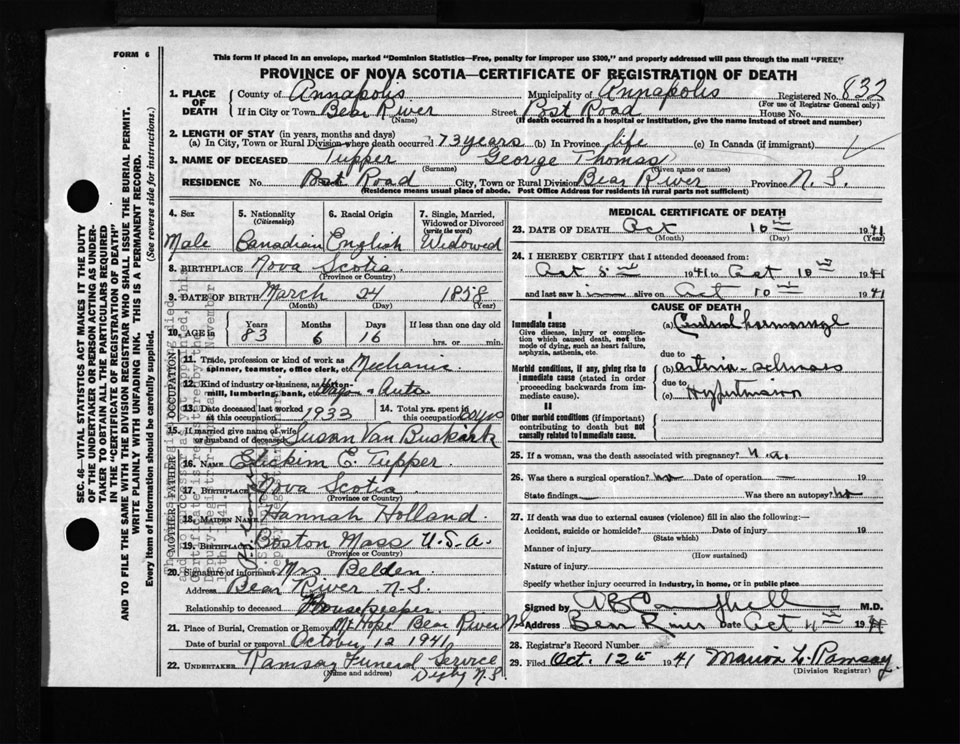 FORM 6
This form if placed in an envelope, marked "Dominion Statistics—Free, penalty for improper use $300," and properly addressed will pass through the mail "FREE"
PROVINCE OF NOVA SCOTIA—CERTIFICATE OF REGISTRATION OF DEATH
1. PLACE OF DEATH County of Annapolis Municipality of Annapolis Registered No. 832
(For use of Registrar General only)
If in City or Town Bear River Street Post Road House No.
(Name) (If death occurred in a hospital or institution, give the name instead of street and number)
2. LENGTH OF STAY (in years, months and days)
(a) In City, Town or Rural Division where death occurred 73 years (b) In Province life (c) In Canada (if immigrant)
3. NAME OF DECEASED Tupper George Thomas
(Surname) (Given name or names)
RESIDENCE No. Post Road City, Town or Rural Division Bear River Province N. S.
(Residence means usual place of abode. Post Office Address for residents in rural parts not sufficient)
4. Sex Male
5. Nationality (Citizenship) Canadian
6. Racial Origin English
7. Single, Married, Widowed or Divorced (write the word) Widowed
8. BIRTHPLACE Nova Scotia
(Province or Country)
9. DATE OF BIRTH March 24 1858
(Month) (Day) (Year)
10. AGE in Years 83 Months 6 Days 16 If less than one day old
hrs. or min.
OCCUPATION
11. Trade, profession or kind of work as spinner, teamster, office clerk, etc. Mechanic
12. Kind of industry or business, as cotton-mill, lumbering, bank, etc. Auto
13. Date deceased last worked at this occupation 1933
14. Total yrs. spent in this occupation
15. If married give name of wife or husband of deceased Susan Van Buskirk
FATHER
16. NAME E. Tupper
17. BIRTHPLACE Nova Scotia
(Province or Country)
MOTHER
18. MAIDEN NAME Hannah Holland
19. BIRTHPLACE Boston Mass U.S.A.
(Province or Country)
20. Signature of informant Mrs Belden
Address Bear River N.S.
Relationship to deceased Housekeeper
21. Place of Burial, Cremation or Removal Mt Hope Bear River N.S
Date of burial or removal October 12 1941
22. UNDERTAKER Ramsay Funeral Service
(Name and address) Digby N.S
MEDICAL CERTIFICATE OF DEATH
23. DATE OF DEATH Oct 10th 1941
(Month) (Day) (Year)
24. I HEREBY CERTIFY that I attended deceased from:
Oct 1941 to Oct 10 1941
and last saw him alive on Oct 10th 1941
CAUSE OF DEATH
I
Immediate cause
Give disease, injury or complication which caused death, not the mode of dying, such as heart failure, asphyxia, asthenia, etc.
(a) Cerebral hemorrhage
due to
Morbid conditions, if any, giving rise to immediate cause (stated in order proceeding backwards from immediate cause).
(b) arterio-sclerosis
due to
(c) Hypertension
II
Other morbid conditions (if important) contributing to death but not causally related to immediate cause.
25. If a woman, was the death associated with pregnancy? n.a.
26. Was there a surgical operation? no Date of operation 19
State findings Was there an autopsy? no
27. If death was due to external causes (violence) fill in also the following:—
Accident, suicide or homicide? Date of injury 19
(State which)
Manner of injury
(How sustained)
Nature of injury
Specify whether injury occurred in industry, in home, or in public place
Signed by A B Campbell M.D.
Address Bear River Date Oct 11th 1941
28. Registrar's Record Number
29. Filed Oct. 12th 1941 Marion L. Ramsay.
(Division Registrar)
SEC. 46—VITAL STATISTICS ACT MAKES IT THE DUTY OF THE UNDERTAKER OR PERSON ACTING AS UNDERTAKER TO OBTAIN ALL THE PARTICULARS REQUIRED IN THE "CERTIFICATE OF REGISTRATION OF DEATH"
AND TO FILE THE SAME WITH THE DIVISION REGISTRAR WHO SHALL ISSUE THE BURIAL PERMIT.
WRITE PLAINLY WITH UNFADING INK. THIS IS A PERMANENT RECORD.
Every item of Information should be carefully supplied. (See reverse side for instructions.)